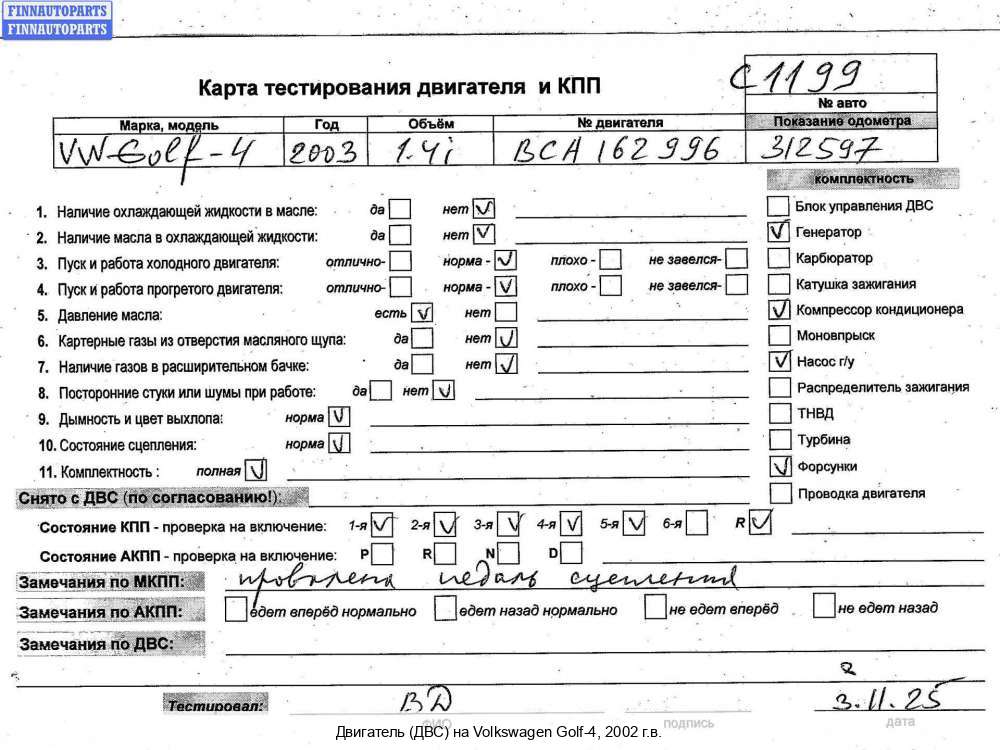 FINNAUTOPARTS
FINNAUTOPARTS
Карта тестирования двигателя и КПП
C1199
№ авто
Марка, модель Год Объём № двигателя Показание одометра
VW-Golf-4 2003 1.4i BCA 162 996 312597
комплектность
1. Наличие охлаждающей жидкости в масле: да нет
2. Наличие масла в охлаждающей жидкости: да нет
3. Пуск и работа холодного двигателя: отлично- норма - плохо - не завелся-
4. Пуск и работа прогретого двигателя: отлично- норма - плохо - не завелся-
5. Давление масла: есть нет
6. Картерные газы из отверстия масляного щупа: да нет
7. Наличие газов в расширительном бачке: да нет
8. Посторонние стуки или шумы при работе: да нет
9. Дымность и цвет выхлопа: норма
10. Состояние сцепления: норма
11. Комплектность : полная
Блок управления ДВС
Генератор
Карбюратор
Катушка зажигания
Компрессор кондиционера
Моновпрыск
Насос г/у
Распределитель зажигания
ТНВД
Турбина
Форсунки
Проводка двигателя
Снято с ДВС (по согласованию!):
Состояние КПП - проверка на включение: 1-я 2-я 3-я 4-я 5-я 6-я R
Состояние АКПП - проверка на включение: P R N D
Замечания по МКПП: провалена педаль сцепления
Замечания по АКПП: едет вперёд нормально едет назад нормально не едет вперёд не едет назад
Замечания по ДВС:
Тестировал: ВД 3.11.25
ФИО подпись дата
Двигатель (ДВС) на Volkswagen Golf-4, 2002 г.в.